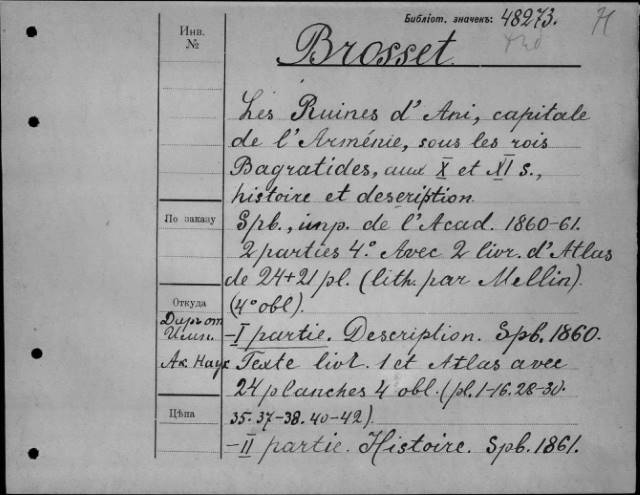 Библіот. значекъ: 48273.
Инв.
№
Brosset.
Les Ruines d'Ani, capitale
de l'Arménie, sous les rois
Bagratides, aux X et XI s.,
histoire et description
По заказу
Spb., imp. de l'Acad. 1860-61.
2 parties 4º. Avec 2 livr. d'Atlas
de 24+21 pl. (lith. par Mellin).
Откуда
(4º obl).
Даръ от
Имп.
Ак. Наук
-I partie. Description. Spb. 1860.
Texte livr. 1 et Atlas avec
24 planches 4 obl. (pl. 1-16. 28-30.
Цѣна
35. 37-38. 40-42).
-II partie. Histoire. Spb. 1861.